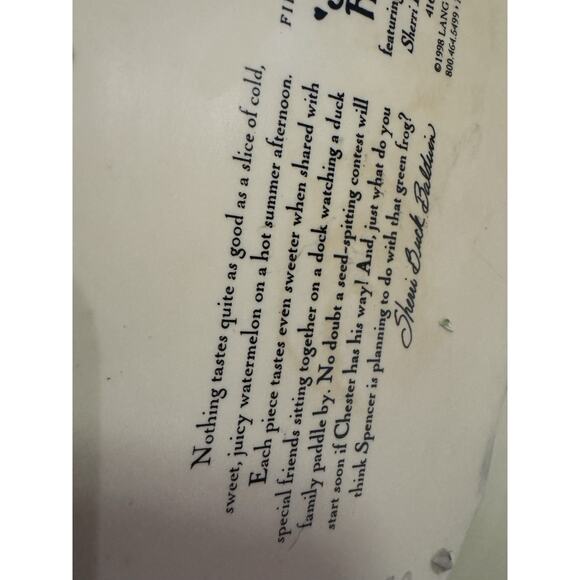 FI
featuring
Sherri
416
©1998 LANG
800.464.5499
Nothing tastes quite as good as a slice of cold,
sweet, juicy watermelon on a hot summer afternoon.
Each piece tastes even sweeter when shared with
special friends sitting together on a dock watching a duck
family paddle by. No doubt a seed-spitting contest will
start soon if Chester has his way! And, just what do you
think Spencer is planning to do with that green frog?
Sherri Buck Baldwin